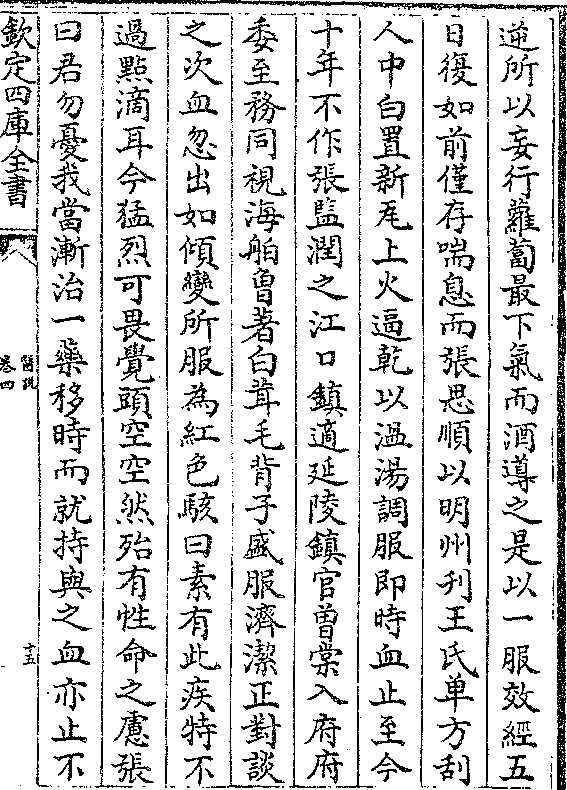 逆所以妄行蘿蔔最下氣而酒導之是以一服效經五
日復如前僅存喘息而張思順以明州刋王氏单方刮
人中白置新瓦上火逼乾以温湯調服即時血止至今
十年不作張監潤之江口鎮適延陵鎮官曽棠入府府
委至務同視海舶曽著白茸毛背子盛服濟潔正對談
之次血忽出如傾變所服為紅色駭曰素有此疾特不
過點滴耳今猛烈可畏覺頭空空然殆有性命之慮張
曰君勿憂我當漸治一藥移時而就持與之血亦止不
欽定四庫全書
醫説
卷四
十五